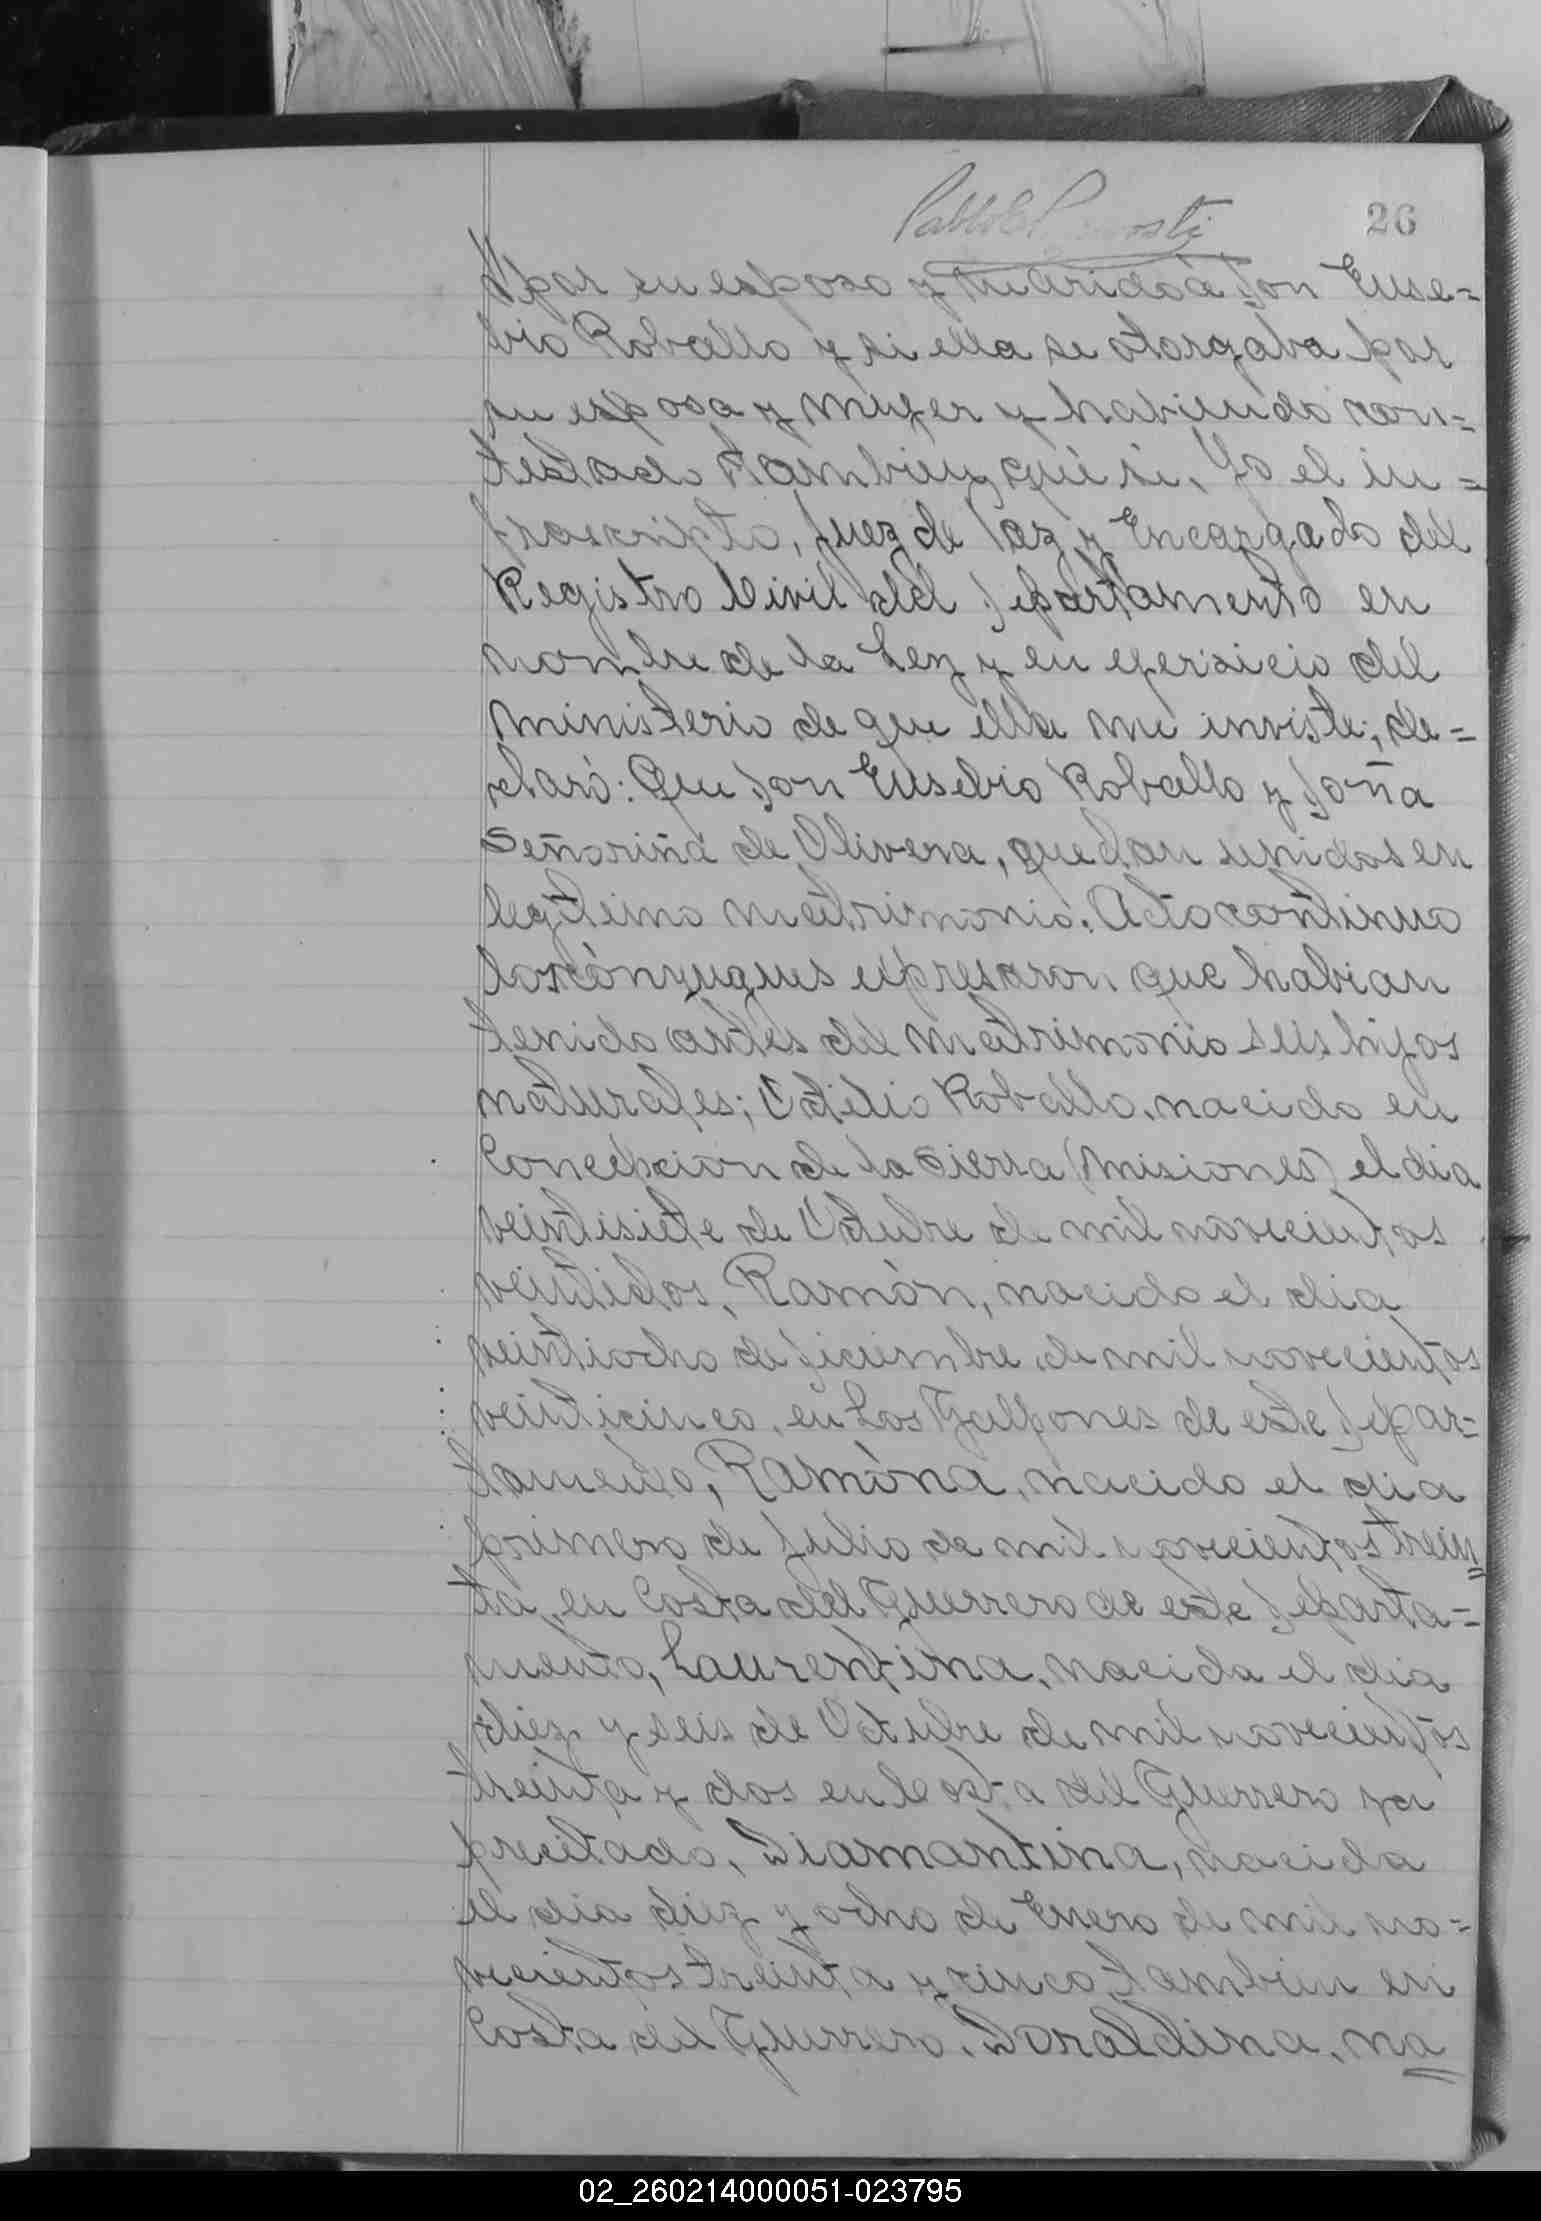 26
por su esposo y marido á Don Euse=
bio Roballo y si ella se otorgaba por
su esposa y mujer y habiendo con=
testado tambien que si, Yo el in=
frascripto, Juez de Paz y Encargado del
Registro Civil del Departamento en
nombre de la Ley y en ejersicio del
ministerio de que ella me inviste; de=
claró: Que Don Eusebio Roballo y Doña
Señoriña de Olivera, quedan unidos en
legitimo matrimonio. Acto continuo
los cónyugues expresaron que habian
tenido antes del matrimonio seis hijos
naturales; Otilio Roballo, nacido en
Concepcion de la Sierra (Misiones) el dia
veintisiete de Octubre de mil novecientos
veintidos, Ramón, nacido el dia
veintiocho de Diciembre de mil novecientos
veinticinco, en Los Galpones de este Depar=
tamento, Ramóna, nacida el dia
primero de Julio de mil novecientos trein=
ta, en Costa del Guerrero de este Departa=
mento, Laurentina, nacida el dia
diez y seis de Octubre de mil novecientos
treinta y dos en Costa del Guerrero ya
precitado, Diamantina, nacida
el dia diez y ocho de Enero de mil no=
vecientos treinta y cinco, tambien en
Costa del Guerrero, Doraldina, na=
02_260214000051-023795